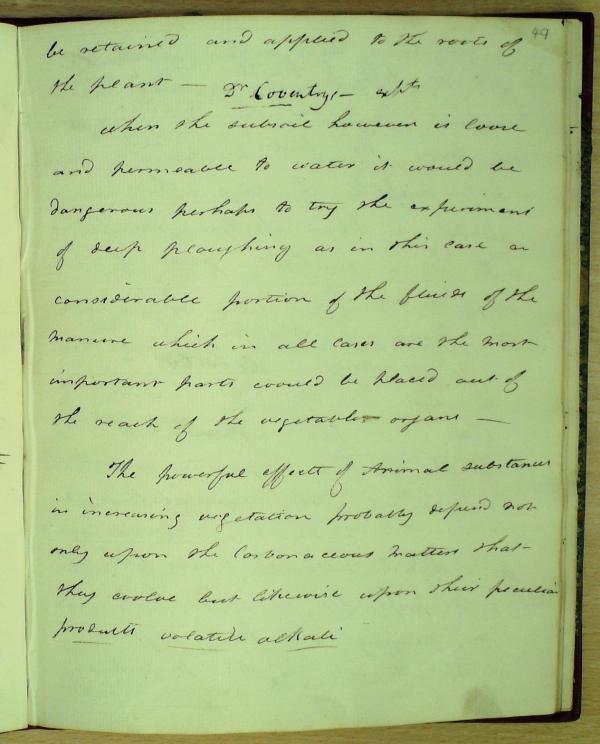 49
be retained and applied to the roots of
the plant — Dr Coventrys — expts
when the subsoil however is loose
and permeable to water it would be
dangerous perhaps to try the experiment
of deep ploughing as in this case a
considerable portion of the fluids of the
manure which in all cases are the most
important parts would be placed out of
the reach of the vegetable organs —
The powerful effects of Animal substances
in increasing vegetation probably depend not
only upon the Carbonaceous matters that
they evolve but likewise upon their peculiar
products volatile alkali